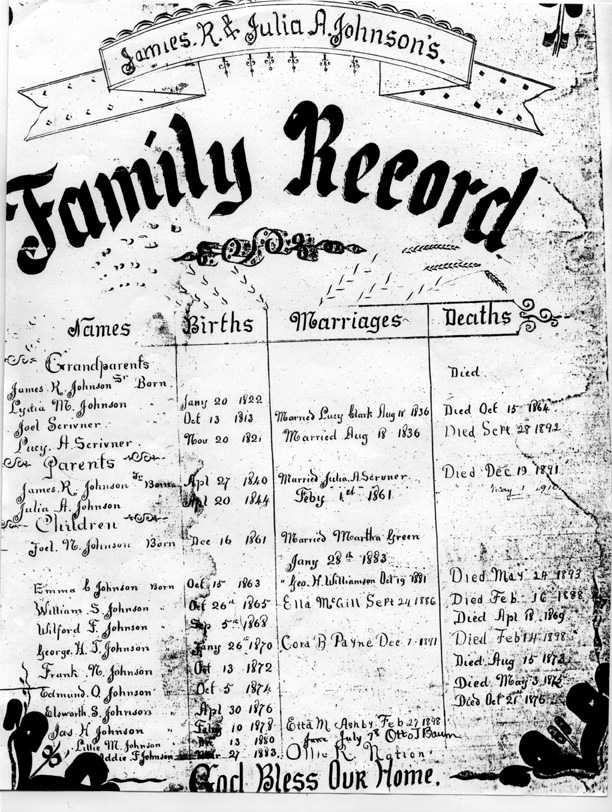 James. R. & Julia A. Johnson's.
Family Record
Names Births Marriages Deaths
Grandparents
James R. Johnson Sr Born Died
Lydia M. Johnson Jany 20 1822
Joel Scrivner Oct 13 1813 Married Lucy Clark Aug 18 1836 Died Oct 15 1864
Lucy. A. Scrivner Nov 20 1821 Married Aug 18 1836 Died Sept 28 1892
Parents
James. R. Johnson Jr Born Apl 27 1840 Married Julia. A. Scrivner Died Dec 19 1891
Julia A. Johnson Apl 20 1844 Feby 1st 1861 May 1
Children
Joel. N. Johnson Born Dec 16 1861 Married Martha Green
Jany 28th 1883
Emma C Johnson Born Oct 15 1863 " Geo. H. Williamson Oct 19 1881 Died May 24 1893
William S Johnson " Oct 26th 1865 Ella McGill Sept 24 1886 Died Feb 16 1898
Wilford F. Johnson " Sep 5th 1868 Died Apl 18 1869
George. H. T. Johnson " Jany 26th 1870 Cora B Payne Dec 1891 Died Feb 14 1898
Frank. N. Johnson Oct 13 1872 Died Aug 15
Edmund. O. Johnson " Oct 5 1874 Died May 3
Elsworth S. Johnson " Apl 30 1876 Died Oct 21 1876
Jas H Johnson " Feby 10 1878 Etta M Ashby Feb 27 1898
Lillie M. Johnson " 13 1880 June July 98 Otto J Baum
Addie F. Johnson 27 1883 Ollie R. Nation
God Bless Our Home.